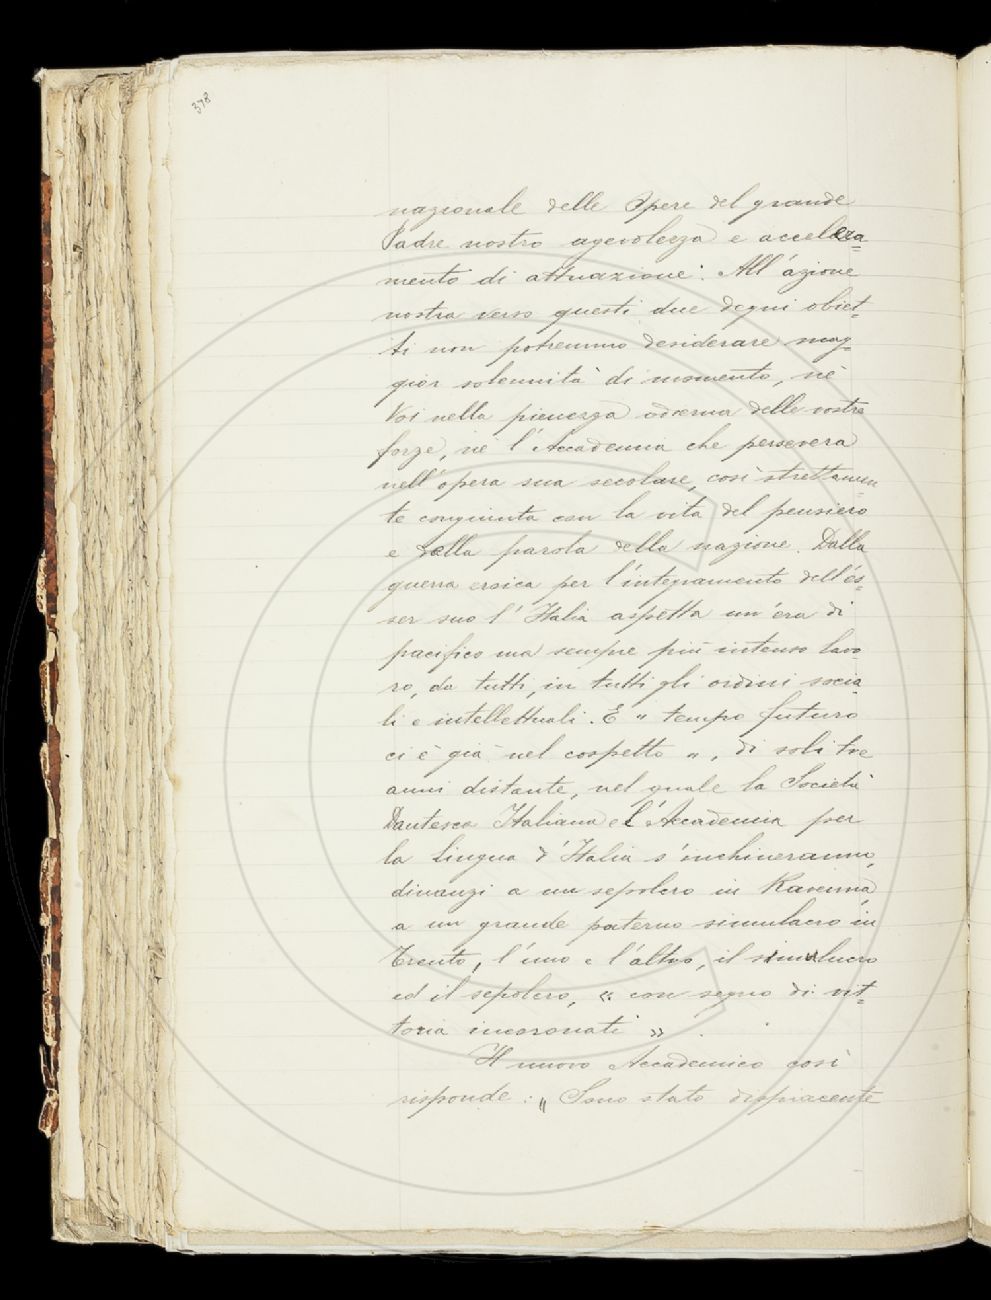 378
nazionale delle Opere del grande
Padre nostro agevolezza e accelera=
mento di attuazione. All'azione
nostra verso questi due degni obiet=
ti non potremmo desiderare mag=
gior solennità di momento, nè
Voi nella pienezza odierna delle vostre
forze, nè l'Accademia che persevera
nell'opera sua secolare, così strettamen=
te congiunta con la vita del pensiero
e della parola della nazione. Dalla
guerra eroica per l'integramento dell'es=
ser suo l'Italia aspetta un'era di
pacifico ma sempre più intenso lavo=
ro, da tutti, in tutti gli ordini socia=
li e intellettuali. E " tempo futuro
ci è già nel cospetto ", di soli tre
anni distante, nel quale la Società
Dantesca Italiana e l'Accademia per
la Lingua d'Italia s'inchineranno,
dinanzi a un sepolcro in Ravenna
a un grande paterno simulacro in
Trento, l'uno e l'altro, il simulacro
ed il sepolcro, « con segno di vit=
toria incoronati ».
Il nuovo Accademico così
risponde: „ Sono stato dispiacente